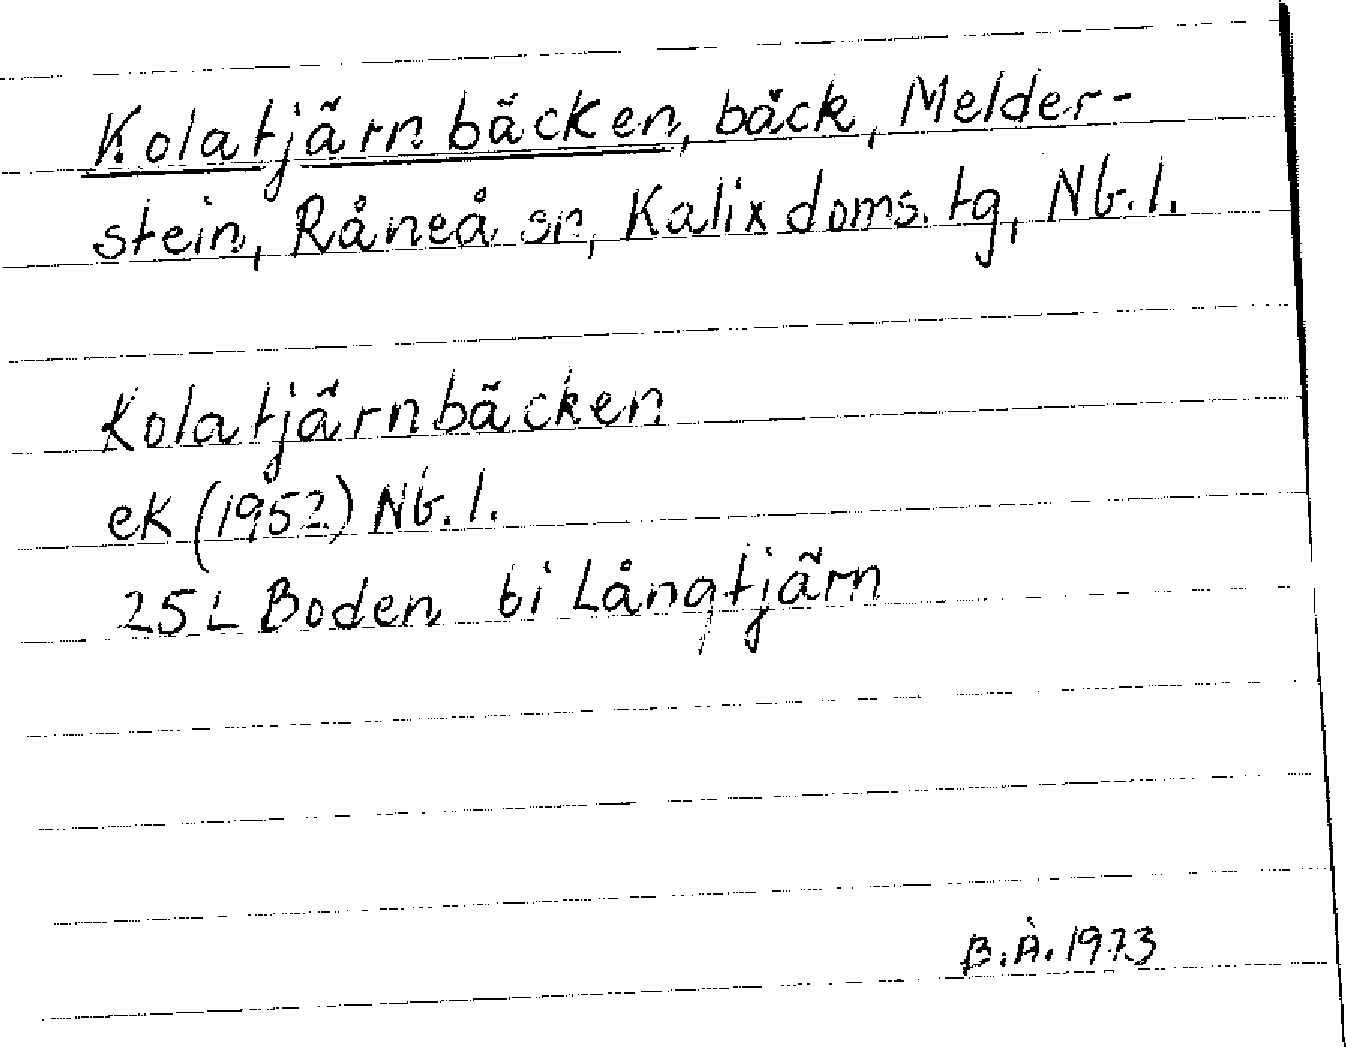 Kolatjärnbäcken, bäck, Melder-
stein, Råneå sn, Kalix doms. tg, Nb. l.
Kolatjärnbäcken
ek (1952) Nb. l.
25 L Boden bi Långtjärn
B. Å. 1973